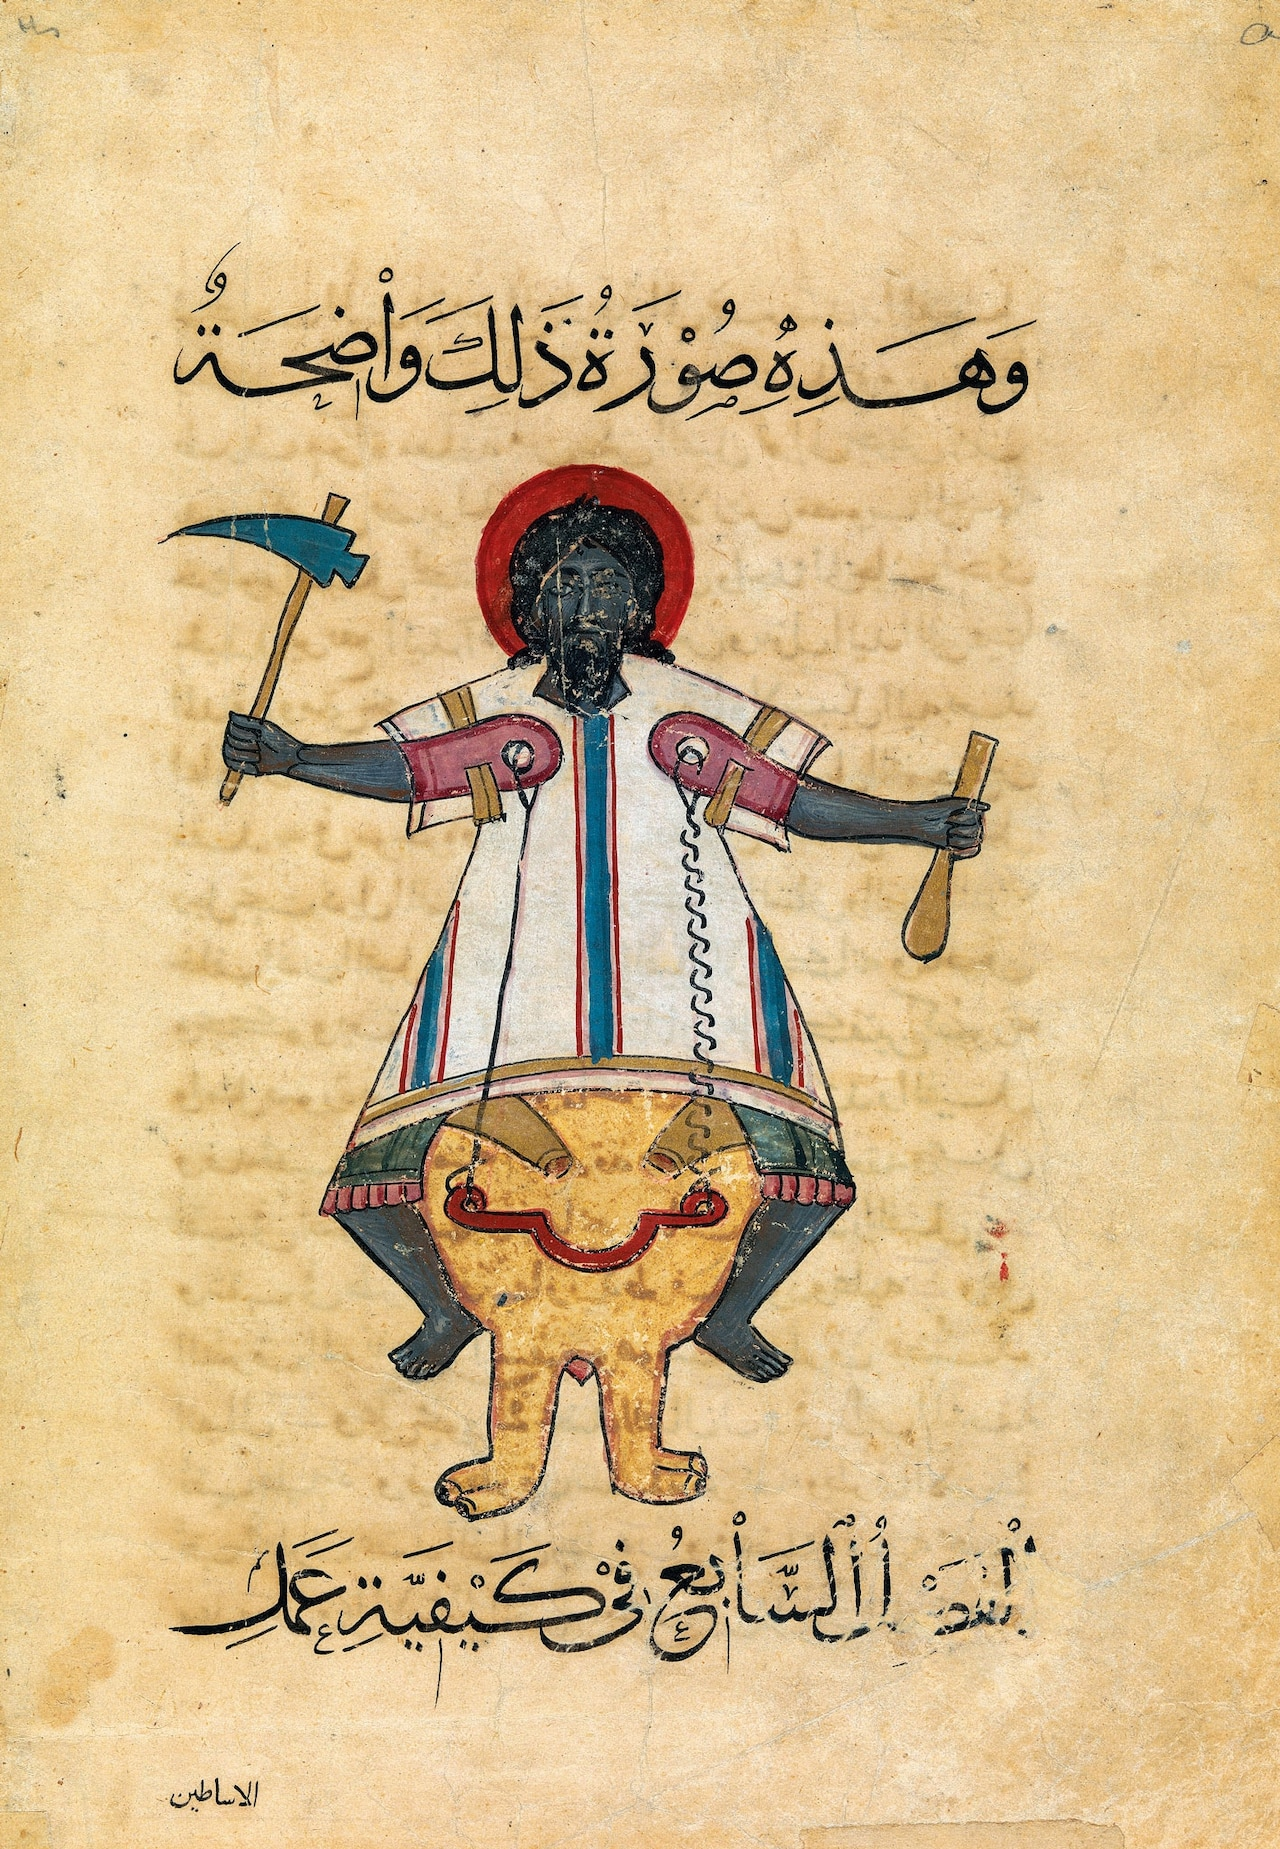 وَهَذِهِ صُوْرَةُ ذَلِكَ وَاْضِحَةٌ
الفصل السَّاْبِعُ فِيْ كَيْفِيَّةِ عَمَلِ
الاساطين